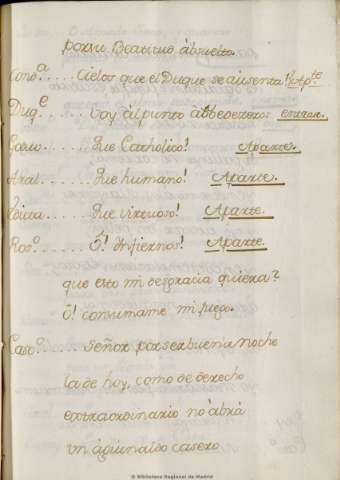 por su Beatitud absuelto.
Ano.ª..... Cielos que el Duque se ausenta! Ap.te
Duq.e..... Voy al punto à obedeceros. entrase.
..... Que Catholico! Aparte.
..... Que humano! Aparte.
..... Que virtuoso! Aparte.
Ros.º..... Ô! Infiernos! Aparte.
que esto mi desgracia quiera?
Ô! consumame mi fuego.
Cas.º..... Señor por ser buena noche
la de hoy, como de derecho
extraordinario no àbrá
un àguinaldo casero
© Biblioteca Regional de Madrid